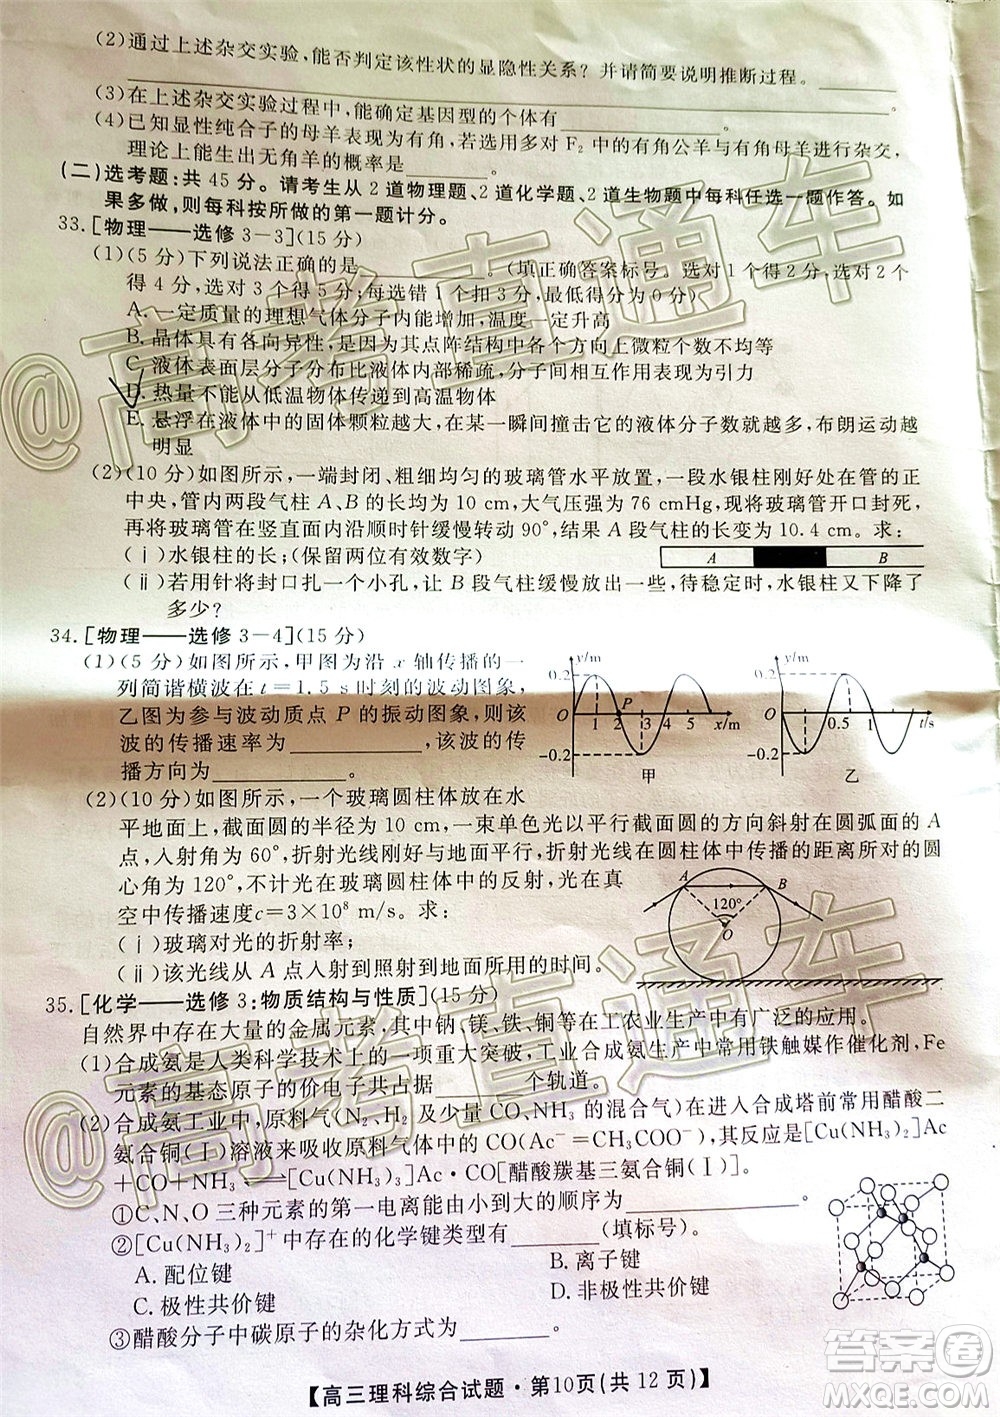 (2)通过上述杂交实验,能否判定该性状的显隐性关系? 并请简要说明推断过程。
(3)在上述杂交实验过程中,能确定基因型的个体有________。
(4)已知显性纯合子的母羊表现为有角,若选用多对 F₂ 中的有角公羊与有角母羊进行杂交,
理论上能生出无角羊的概率是________。
(二)选考题:共 45 分。请考生从 2 道物理题、2 道化学题、2 道生物题中每科任选一题作答。如
果多做,则每科按所做的第一题计分。
33.[物理——选修 3-3](15 分)
(1)(5 分)下列说法正确的是________。(填正确答案标号。选对 1 个得 2 分,选对 2 个
得 4 分,选对 3 个得 5 分;每选错一个扣 3 分,最低得分为 0 分)
A. 一定质量的理想气体分子内能增加,温度一定升高
B. 晶体具有各向异性,是因为其点阵结构在各个方向上微粒个数不相等
C. 液体表面层分子分布比液体内部稀疏,分子间相互作用表现为引力
D. 热量不能从低温物体传递到高温物体
E. 悬浮在液体中的固体颗粒越大,某一瞬间撞击它的液体分子数越多,布朗运动越
明显
(2)(10 分)如图所示,一端封闭、粗细均匀的玻璃管水平放置,一段水银柱刚好在管的正
中央,管内两段气柱 A、B 的长均为 10 cm,大气压强为 76 cmHg,现将玻璃管开口封死,
再将玻璃管在竖直面内沿顺时针缓慢转动 90°,结果 A 段气柱的长变为 10.4 cm。求:
(ⅰ)水银柱的长;(保留两位有效数字)
A B
(ⅱ)若用针将封口扎一个小孔,让 B 段气柱缓慢放出一些,待稳定时,水银柱下降了
多少?
34.[物理——选修 3-4](15 分)
(1)(5 分)如图所示,甲图为沿 x 轴传播的一
列简谐横波在 t=1.5 s时刻的波动图象,
乙图为参与波动质点 P 的振动图象,则该
波的传播速率为________,该波的传
播方向为________。
y/m 0.2 O -0.2 1 2 3 4 5 P x/m 甲
y/m 0.2 O -0.2 0.5 1 t/s 乙
(2)(10 分)如图所示,一个玻璃圆柱体放在水
平地面上,截面圆的半径为 10 cm,一束单色光以平行截面圆的方向斜射在圆弧面的 A
点,入射角为 60°,折射光线刚好与地面平行,折射光线在圆柱体中传播的距离所对的圆
心角为 120°,不计光在玻璃圆柱体中的反射,光在真
空中传播速度c=3×10⁸ m/s。求:
(ⅰ)玻璃对光的折射率;
(ⅱ)该光线从 A 点射入到照射到地面所用的时间。
A B 120° O
35.[化学——选修 3:物质结构与性质](15 分)
自然界中存在大量的金属元素,其中钠、镁、铁、铜等在工农业生产中有广泛的应用。
(1)合成氨是人类科学技术上的一项重大突破,工业合成氨生产中常用铁触媒作催化剂,Fe
元素的基态原子的价电子共占据________个轨道。
(2)合成氨工业中,原料气(N₂、H₂ 及少量 CO、NH₃ 的混合气)在进入合成塔前常用醋酸二
氨合铜(Ⅰ)溶液来吸收原料气体中的 CO(Ac⁻=CH₃COO⁻),其反应是[Cu(NH₃)₂]Ac
+CO+NH₃⇌[Cu(NH₃)₃]Ac·CO[醋酸羰基三氨合铜(Ⅰ)]。
①C、N、O 三种元素的第一电离能由小到大的顺序为________。
②[Cu(NH₃)₂]⁺中存在的化学键类型有________(填标号)。
A. 配位键 B. 离子键
C. 极性共价键 D. 非极性共价键
③醋酸分子中碳原子的杂化方式为________。
【高三理科综合试题·第10页(共 12 页)】
@高考直通车
@高考直通车
答案圈
MXQE.COM